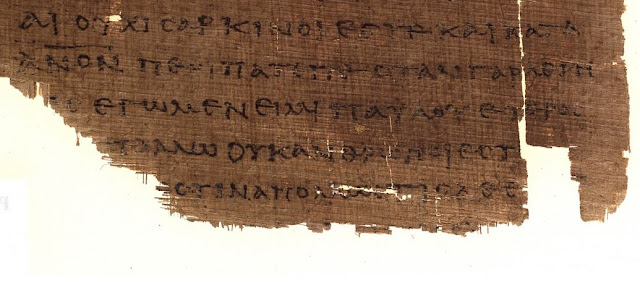 ΑΙ ΟΥΧΙ ϹΑΡΚΙΝΟΙ ΕϹΤΕ ΚΑΙ ΚΑΤΑ
Α̅Ν̅Ο̅Ν̅ ΠΕΡΙΠΑΤΕΙΤΕ ΟΤΑΝ ΓΑΡ ΛΕΓΗ
ΕΓΩ ΜΕΝ ΕΙΜΙ ΠΑΥΛΟΥ ΕΤΕΡΟ
ΠΟΛΛΩ ΟΥΚ ΑΝΘΡΩΠΟΙ ΕϹΤ
ϹΤΙΝ ΑΠΟΛΛΩϹ ΤΙϹ ΔΕ